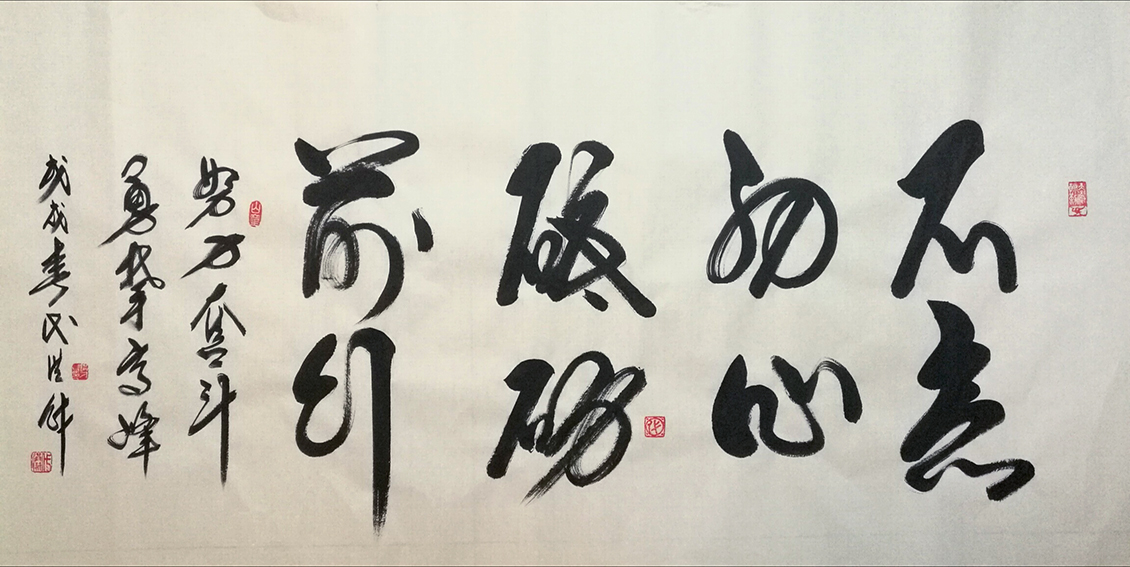 不忘
初心
砥砺
前行
努力奋斗
勇攀高峰
戊戌春